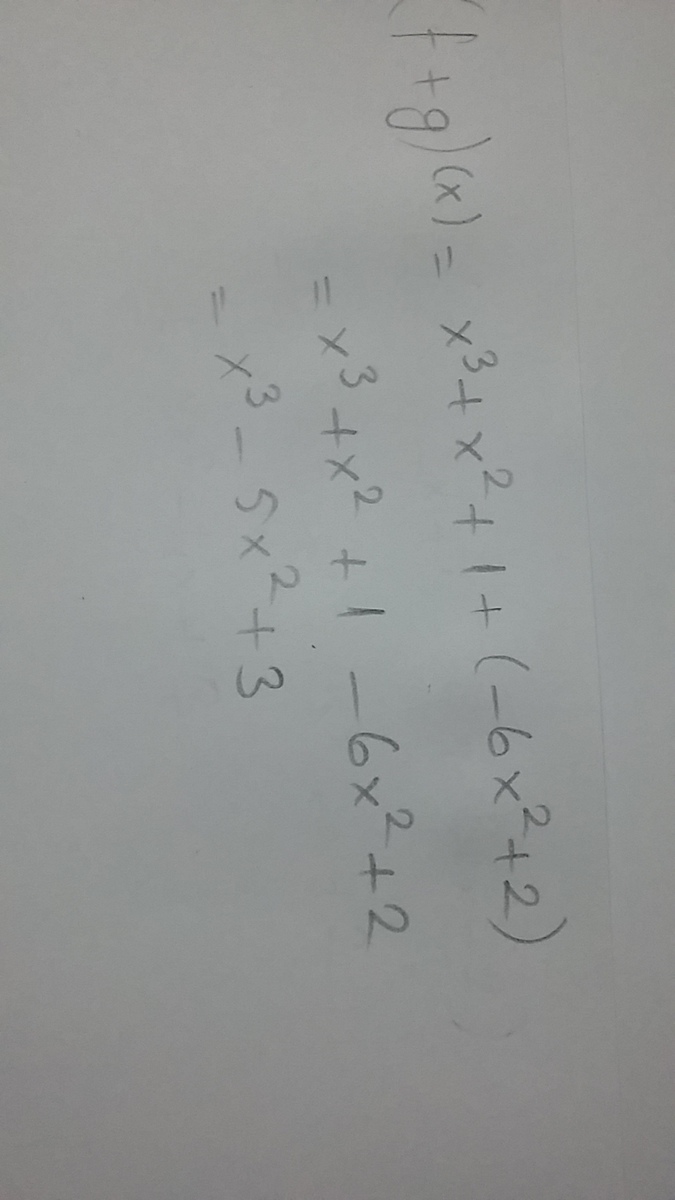 (f+g)(x) = x³ + x² + 1 + (-6x² + 2)
= x³ + x² + 1 - 6x² + 2
= x³ - 5x² + 3